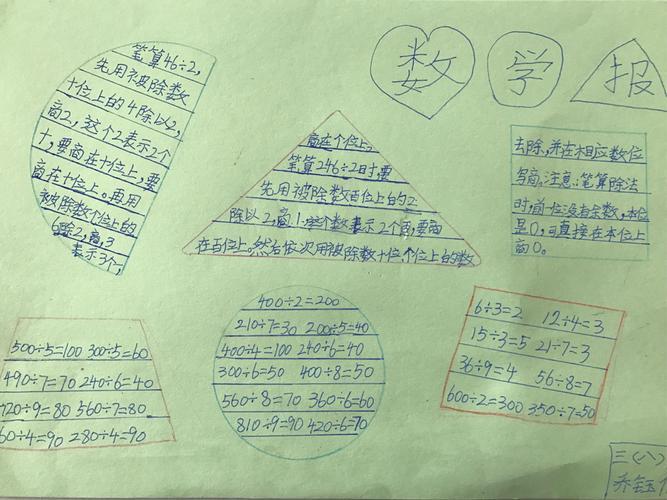 数学报
笔算46÷2,
先用被除数
十位上的4除以2,
商2,这个2表示2个
十,要商在十位上,要
商在十位上。再用
被除数个位上的
6除2,商,3
表示3个一,
商在个位上。
笔算246÷2时,要
先用被除数百位上的2
除以2,商1.这个数表示2个百,要商
在百位上。然后依次用被除数十位个位上的数
去除,并在相应数位
写商。注意:笔算除法
时,前一位没有余数,本位
是0,可直接在本位上
商0。
500÷5=100 300÷5=60
490÷7=70 240÷6=40
720÷9=80 560÷7=80
60÷4=90 280÷4=90
400÷2=200
210÷7=30 200÷5=40
400÷4=100 240÷6=40
300÷6=50 400÷8=50
560÷8=70 360÷6=60
810÷9=90 420÷6=70
6÷3=2 12÷4=3
15÷3=5 21÷7=3
36÷9=4 56÷8=7
600÷2=300 350÷7=50
三(八)
乔钰